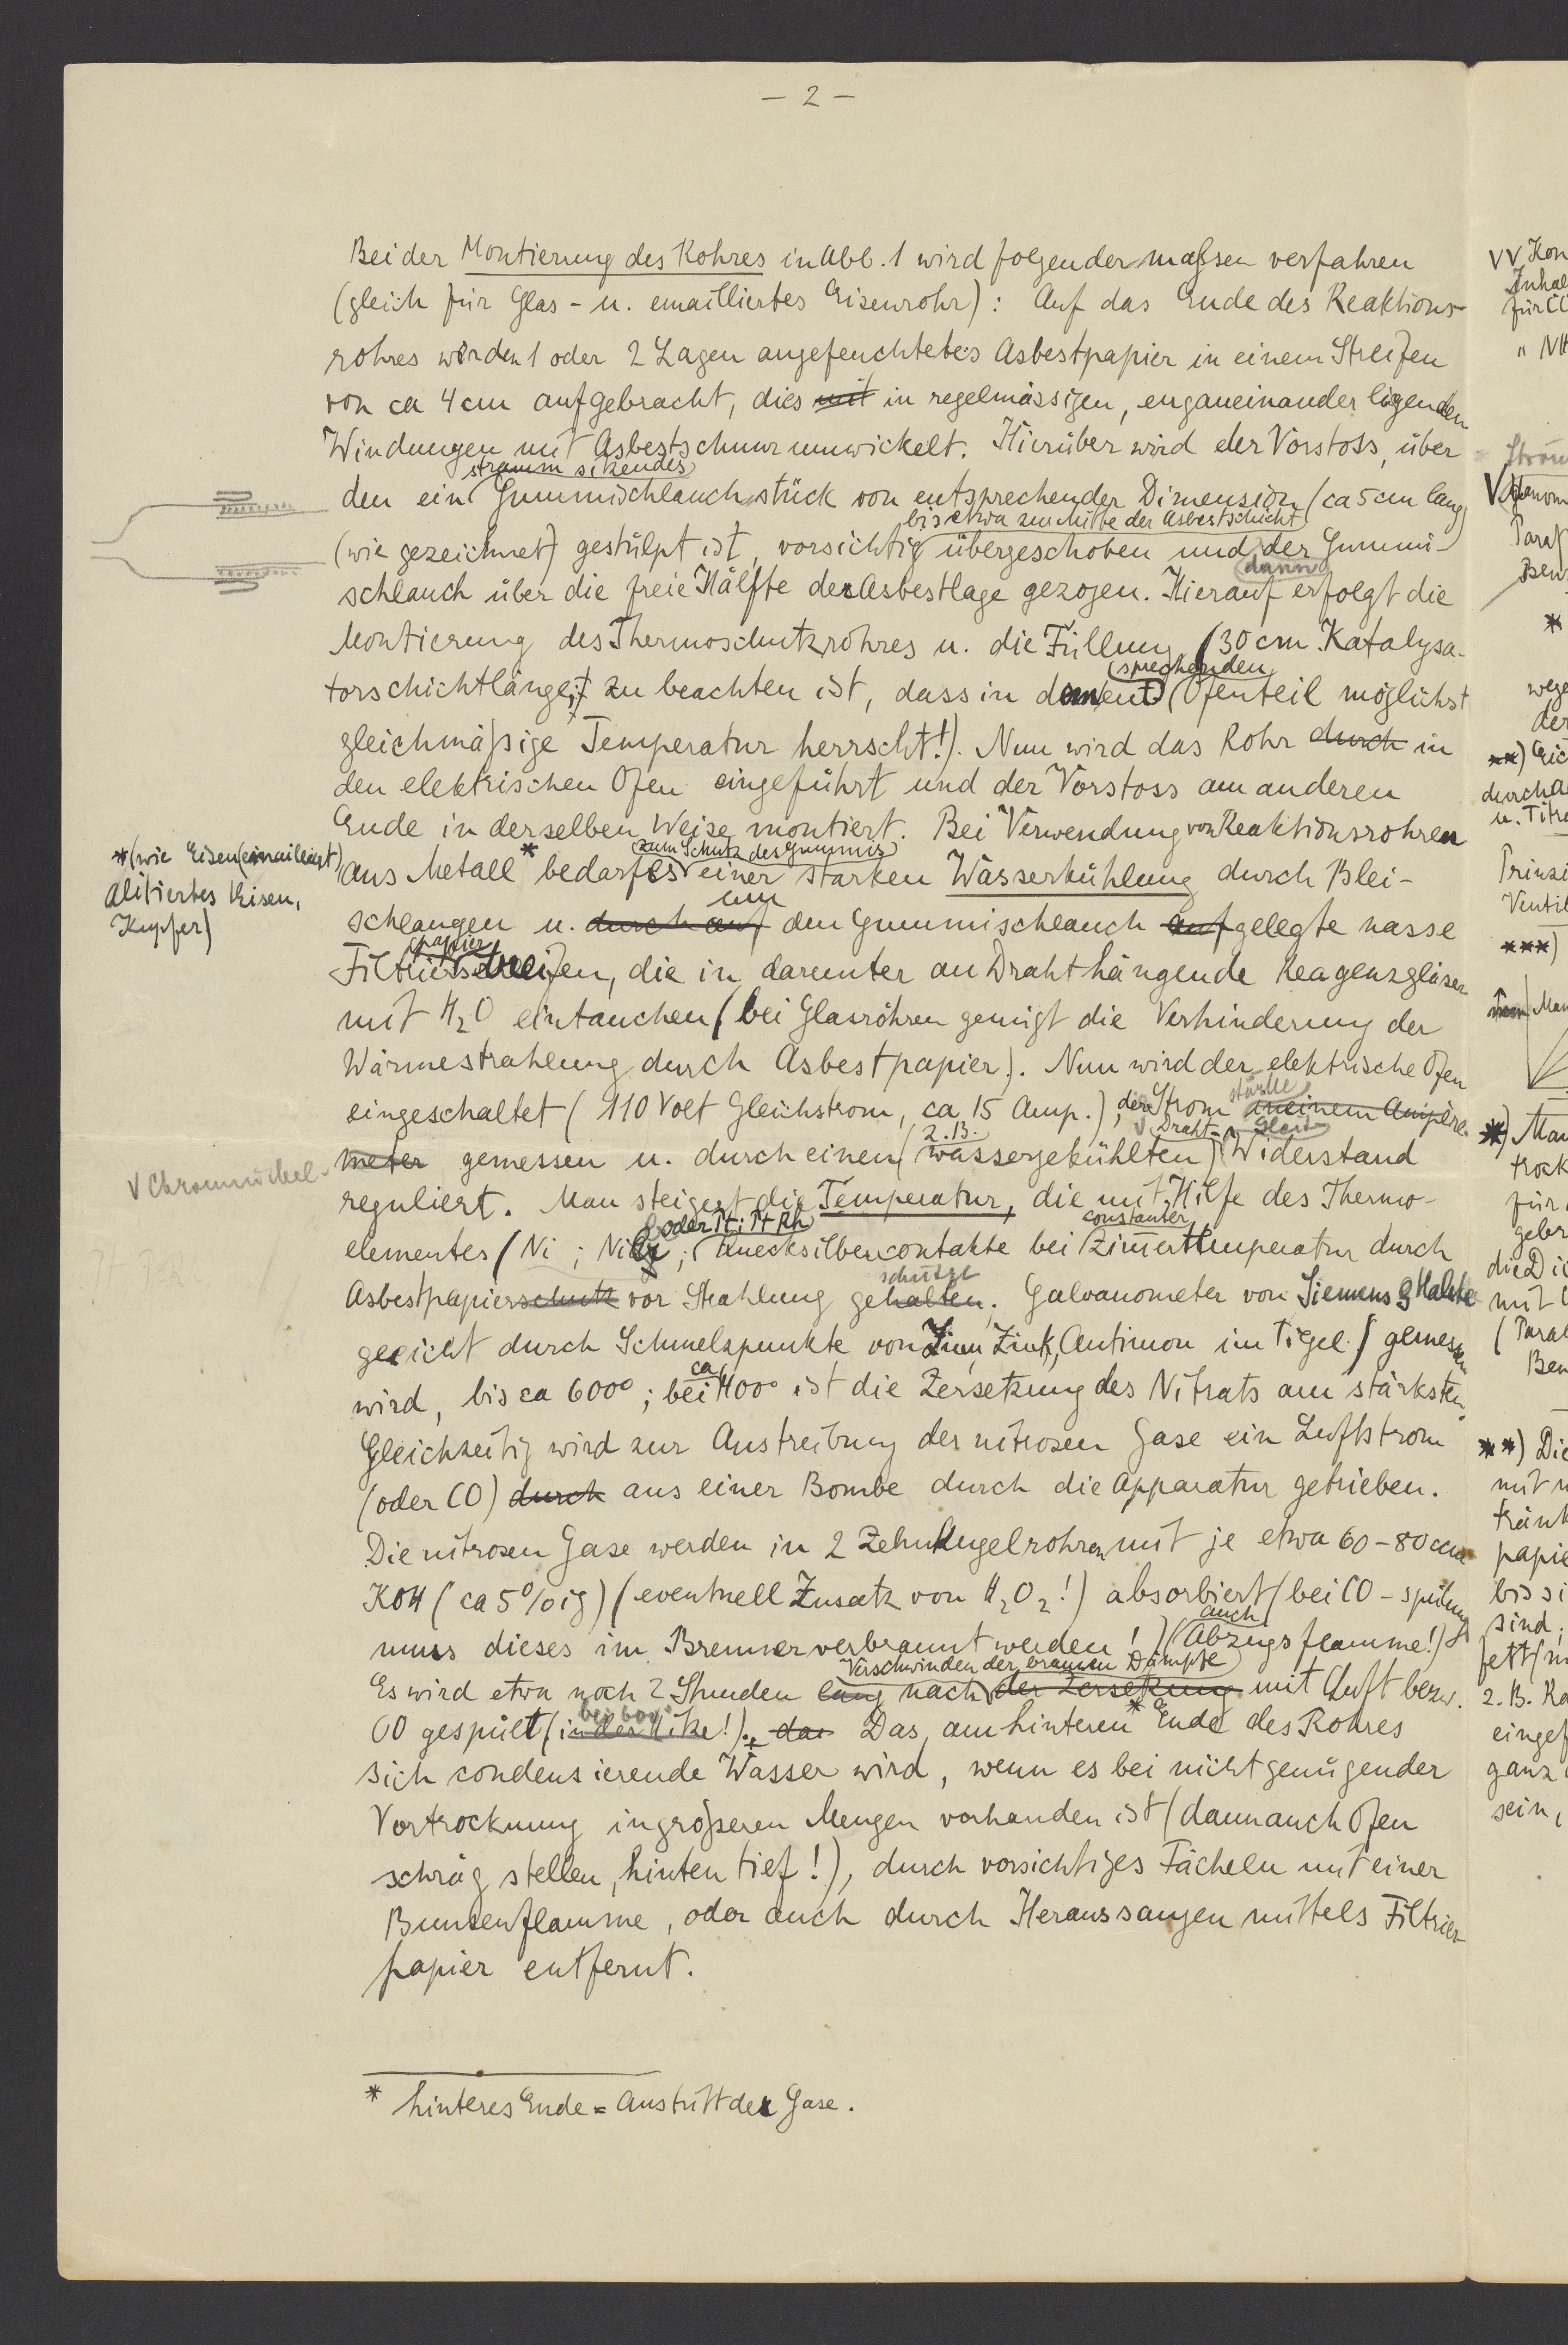 – 2 –
Bei der Montierung des Rohres in Abb. 1 wird folgendermaßsen verfahren
(gleich für Glas- u. emailliertes Eisenrohr): Auf das Ende des Reaktions-
rohres werden 1 oder 2 Lagen angefeuchtetes Asbestpapier in einem Streifen
von ca 4 cm aufgebracht, dies mit in regelmässigen, enganeinander ligenden
Windungen mit Asbestschnur umwickelt. Hierüber wird der Vorstoss, über
stramm sitzendes
den ein Gummischlauchstück von entsprechender Dimension (ca 5 cm lang)
bis etwa zur Mitte der Asbestschicht
(wie gezeichnet) gestülpt ist, vorsichtig übergeschoben und der Gummi-
dann
schlauch über die freie Hälfte der Asbestlage gezogen. Hierauf erfolgt die
Montierung des Thermoschutzrohres u. die Füllung (30 cm Katalysa-
sprechenden
torschichtlänge; zu beachten ist, dass in dem ent Ofenteil möglichst
gleichmäßige Temperatur herrscht!). Nun wird das Rohr durch in
den elektrischen Ofen eingeführt und der Vorstoss am anderen
Ende in derselben Weise montiert. Bei Verwendung von Reaktionsrohren
*(wie Eisen (emailliert)
alitiertes Eisen,
Kupfer)
zum Schutz des Gummis
aus Metall* bedarf es einer starken Wasserkühlung durch Blei-
um
schlangen u. durch auf den Gummischlauch aufgelegte nasse
papier
Filtrierstreifen, die in darunter an Draht hängende Reagenzgläser
mit H₂O eintauchen (bei Glasröhren genügt die Verhinderung der
Wärmestrahlung durch Asbestpapier). Nun wird der elektrische Ofen
stärke
eingeschaltet (110 Volt Gleichstrom, ca 15 Amp.), der Strom an einem Ampère-
z.B. V Draht- Gleit-
meter gemessen u. durch einen (wassergekühlten) Widerstand
V Chromnickel-
reguliert. Man steigert die Temperatur, die mit Hilfe des Thermo-
oder Pt; Pt Rh constanter
elementes (Ni; NiCr; Quecksilbercontakte bei Zimertemperatur durch
schützt
Asbestpapierschutz vor Strahlung gehalten. Galvanometer von Siemens & Halske
geeicht durch Schmelzpunkte von Zinn, Zink, Antimon im Tigel) gemessen
ca
wird, bis ca 600°; bei 400° ist die Zersetzung des Nitrats am stärksten.
Gleichzeitig wird zur Austreibung der nitrosen Gase ein Luftstrom
(oder CO) durch aus einer Bombe durch die Apparatur getrieben.
Die nitrosen Gase werden in 2 Zehnkugelrohren mit je etwa 60–80 ccm
KOH (ca 5%ig) (eventuell Zusatz von H₂O₂!) absorbiert (bei CO-spülung
auch
muss dieses im Brenner verbrannt werden!) (Abzugsflamme!)
Verschwinden der braunen Dämpfe
Es wird etwa noch 2 Stunden lang nach der Zersetzung mit Luft bezw.
bei 600°
CO gespült (in der Hitze!). das Das, am hinteren* Ende des Rohres
sich condensierende Wasser wird, wenn es bei nicht genügender
Vortrocknung in größeren Mengen vorhanden ist (dann auch Ofen
schräg stellen, hinten tief!), durch vorsichtiges Fächeln mit einer
Bunsenflamme, oder auch durch Heraussaugen mittels Filtrier-
papier entfernt.
* hinteres Ende = Austritt der Gase.